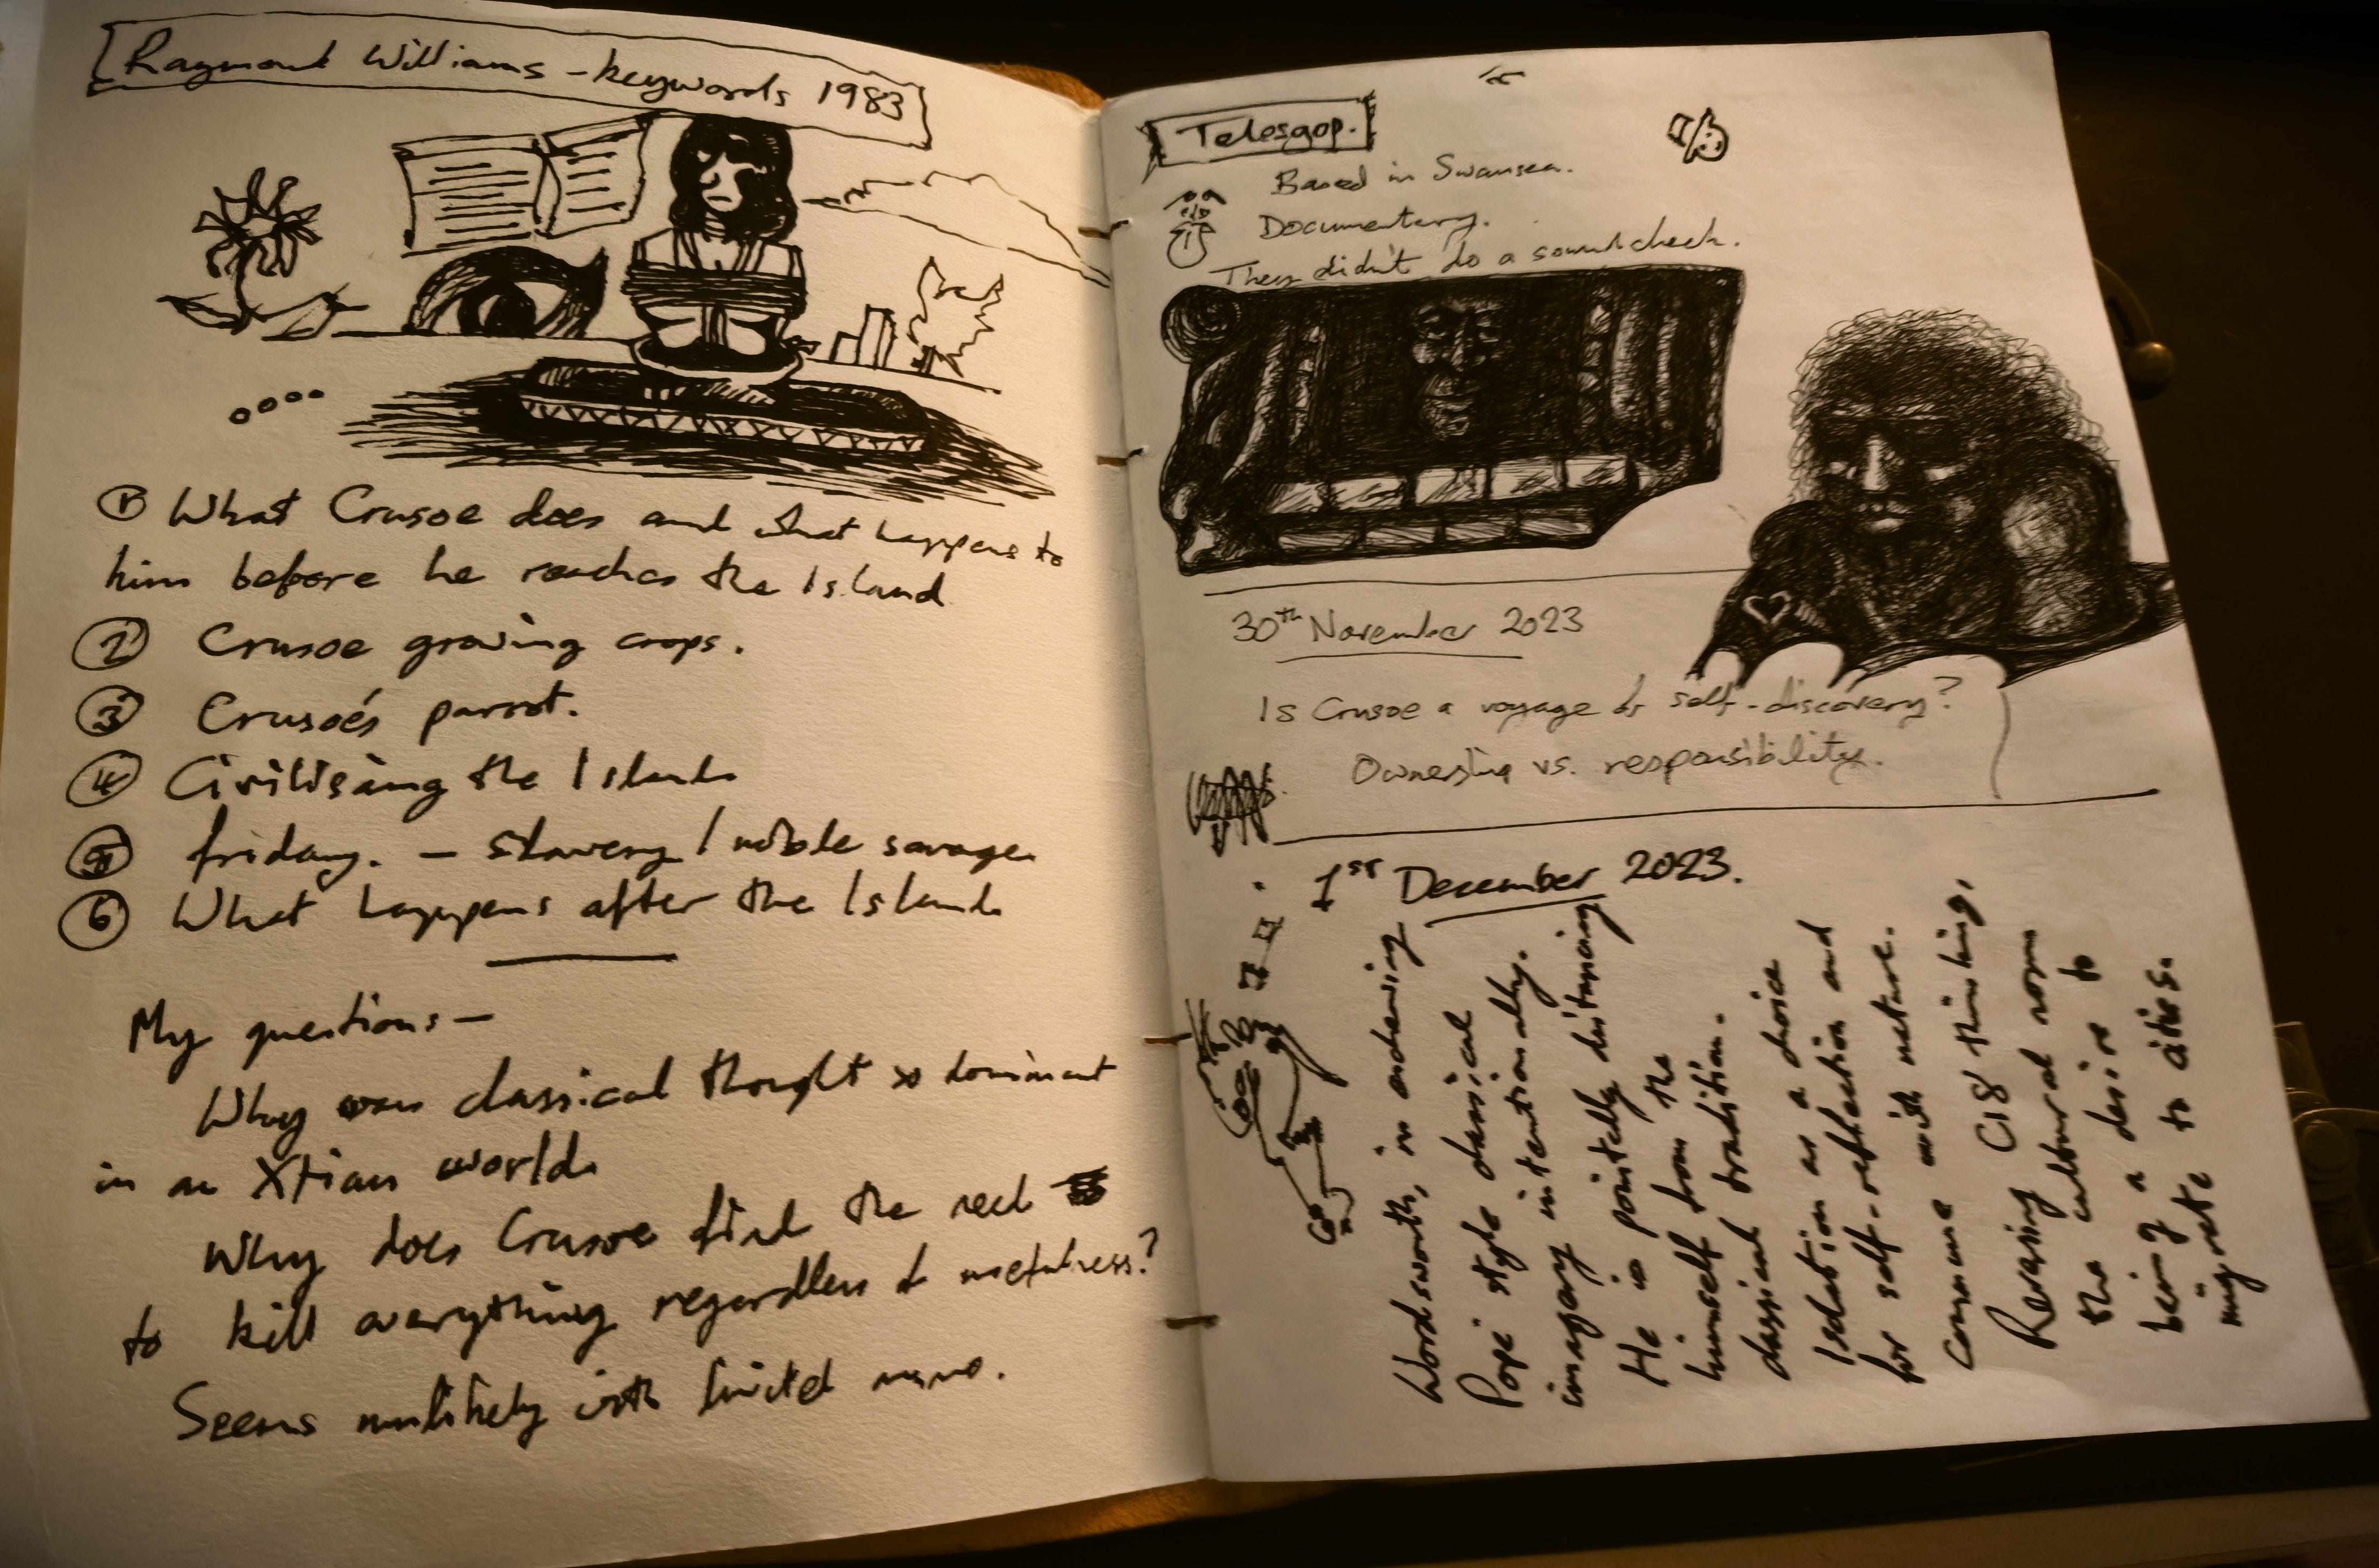 Raymond Williams - keywords 1983
① What Crusoe does and what happens to
him before he reaches the Island
② Crusoe growing crops.
③ Crusoe's parrot.
④ Civilising the Island
⑤ friday. - slavery / noble savage
⑥ What happens after the Island
My questions -
Why was classical thought so dominant
in an Xtian world
Why does Crusoe find the need
to kill everything regardless of usefulness?
Seems unlikely with limited ammo.
Telesgop.
Based in Swansea.
Documentary.
They didn't do a soundcheck.
30th November 2023
Is Crusoe a voyage of self-discovery?
Ownership vs. responsibility.
1st December 2023.
Wordsworth, in eschewing
Pope style classical
imagery intentionally.
He is pointedly distancing
himself from the
classical tradition.
Isolation as a choice
for self-reflection and
commune with nature.
Reversing C18 thinking,
the cultural norm
being a desire to
migrate to cities.